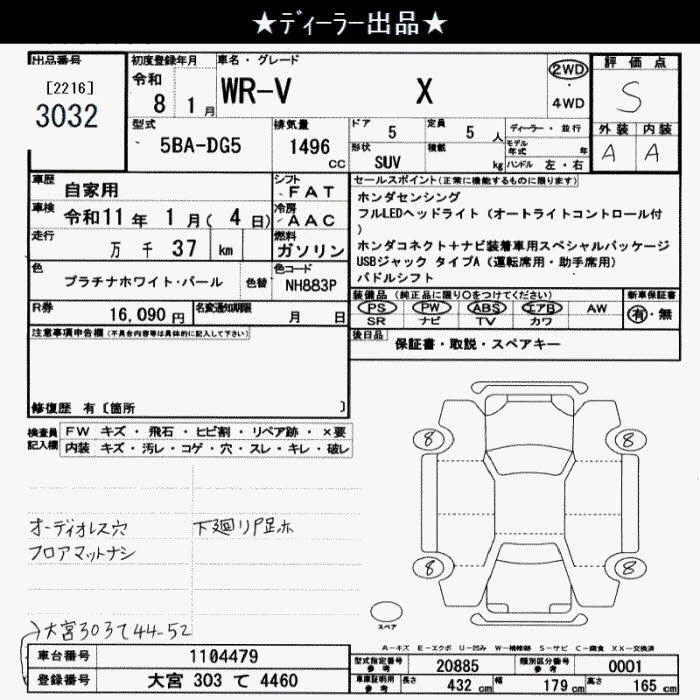 ★ディーラー出品★
出品番号
[2216]
3032
初度登録年月
令和
8 1 月
車名・グレード
WR-V X
2WD
・
4WD
評価点
S
外装 内装
A A
型式
5BA-DG5
排気量
1496
CC
ドア
5
定員
5 人
形状
SUV
積載
kg
ディーラー・並行
モデル年式 年
ハンドル 左・右
車歴
自家用
シフト
FAT
車検
令和11 年 1 月( 4 日)
冷房
AAC
走行
万 千 37 km
燃料
ガソリン
色
プラチナホワイト・パール
色替
色コード
NH883P
R券
16,090 円
名変通知期限
月 日
セールスポイント(正常に機能するものに限ります)
ホンダセンシング
フルLEDヘッドライト(オートライトコントロール付
)
ホンダコネクト+ナビ装着車用スペシャルパッケージ
USBジャック タイプA(運転席用・助手席用)
パドルシフト
装備品(純正品に限り○をつけてください)
PS PW ABS エアB AW
SR ナビ TV カワ
新車保証書
有・無
後日品
保証書・取説・スペアキー
注意事項申告欄(不具合内容等は具体的に記入して下さい)
修復歴 有〔箇所 〕
検査員
記入欄
FW キズ・飛石・ヒビ割・リペア跡・×要
内装 キズ・汚レ・コゲ・穴・スレ・キレ・破レ
オーディオレス穴
フロアマットナシ
8 8
8 8
スペア
大宮303て44-52
A―キズ E―エクボ U―凹み W―補修跡 S―サビ C―腐食 XX―交換済
車台番号 1104479
登録番号 大宮 303 て 4460
型式指定番号
参考
20885
類別区分番号
参考
0001
車庫証明用
参考
長さ 432 cm
幅 179 cm
高さ 165 cm